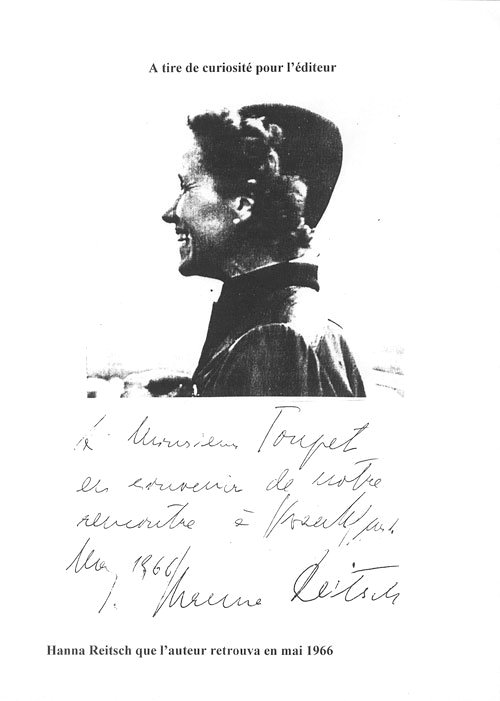 A tire de curiosité pour l'éditeur
à Monsieur Toupet
en souvenir de notre
rencontre à
Mai 1966
Hanna Reitsch
Hanna Reitsch que l'auteur retrouva en mai 1966